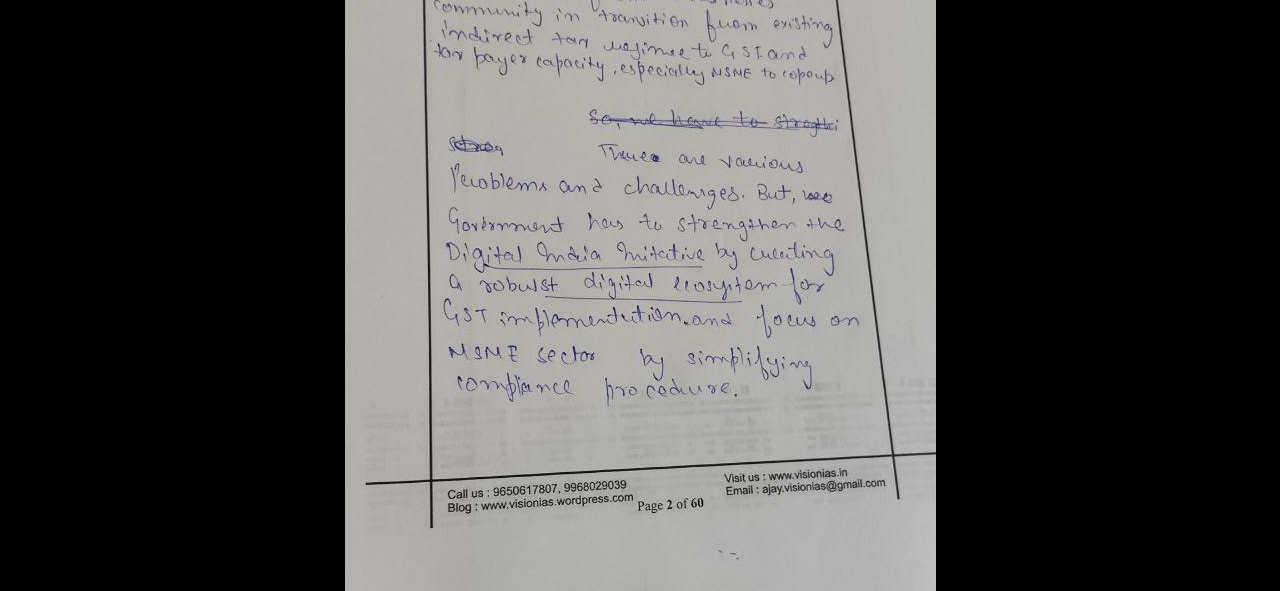 community in transition from existing
indirect tax regime to GST and
tax payer capacity, especially MSME to copeup
So, we have to
There are various
Problems and challenges. But,
Government has to strengthen the
Digital India Initative by creating
a robust digital ecosystem for
GST implementation and focus on
MSME sector by simplifying
compliance procedure.
Call us : 9650617807, 9968029039
Visit us : www.visionias.in
Blog : www.visionias.wordpress.com
Page 2 of 60
Email : ajay.visionias@gmail.com